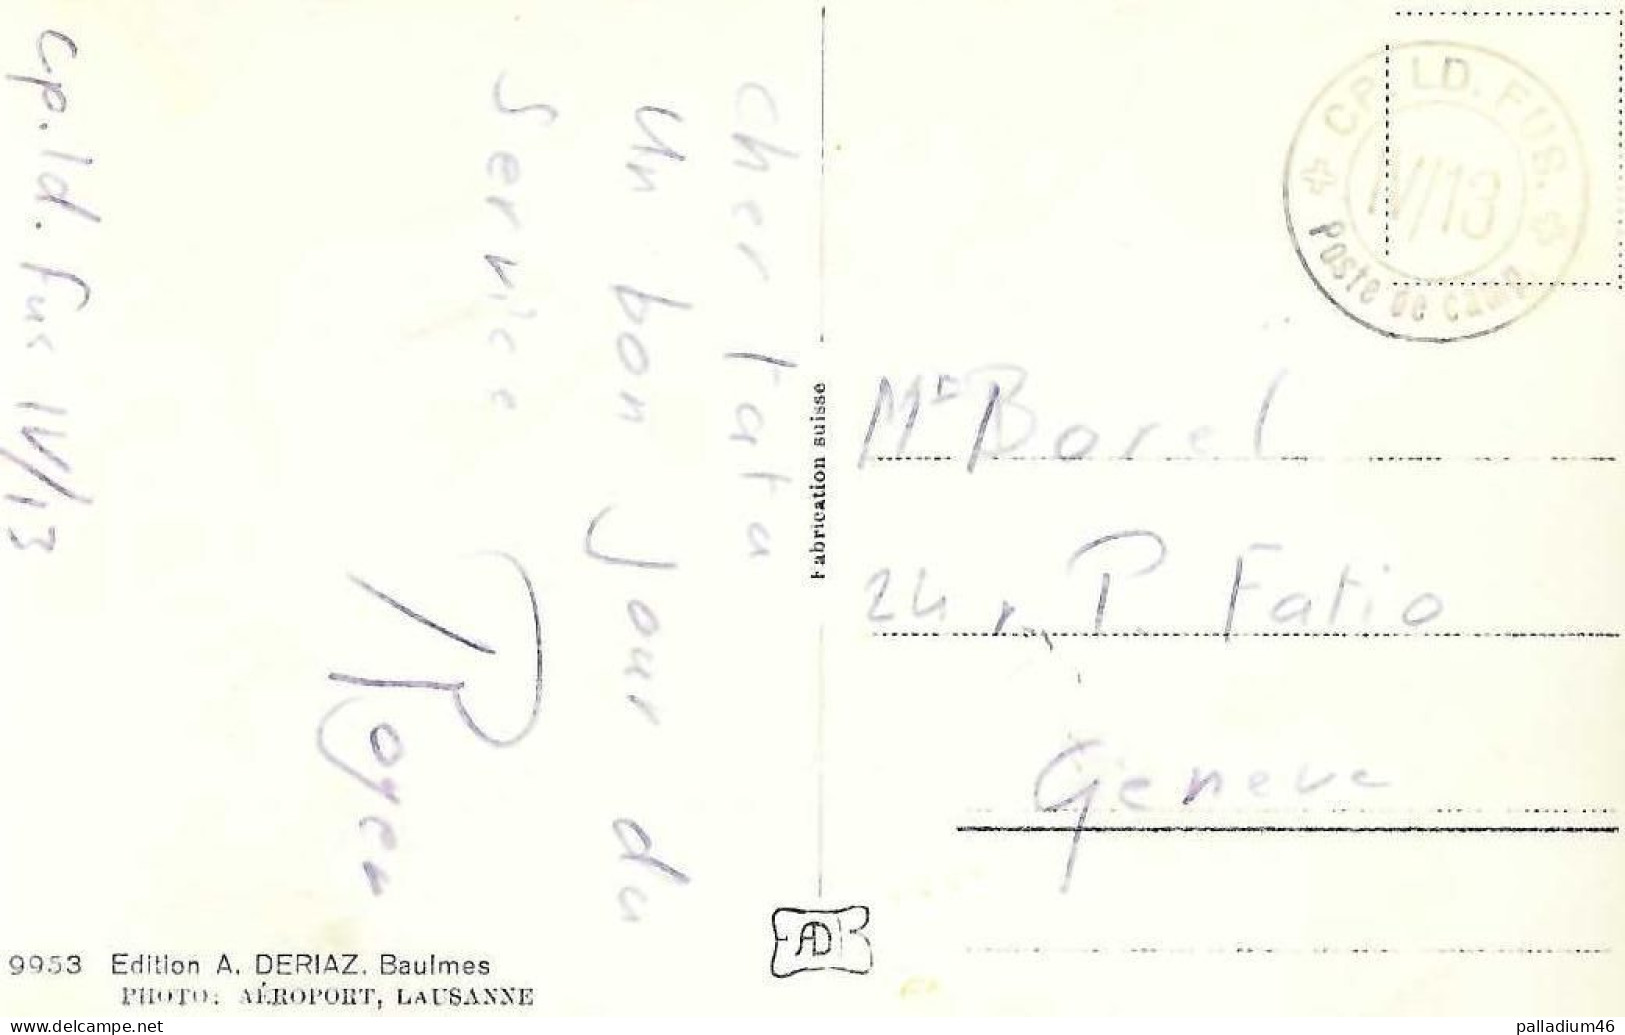 cher Tata
un bon jour du
Service
Roger
cp. ld. fus IV/13
CP. LD. FUS.
IV/13
Poste de camp.
Fabrication suisse
Mr Borel
24 r. P. Fatio
Geneve
9953 Edition A. DERIAZ. Baulmes
PHOTO: AÉROPORT, LAUSANNE
EADB
www.delcampe.net
palladium46